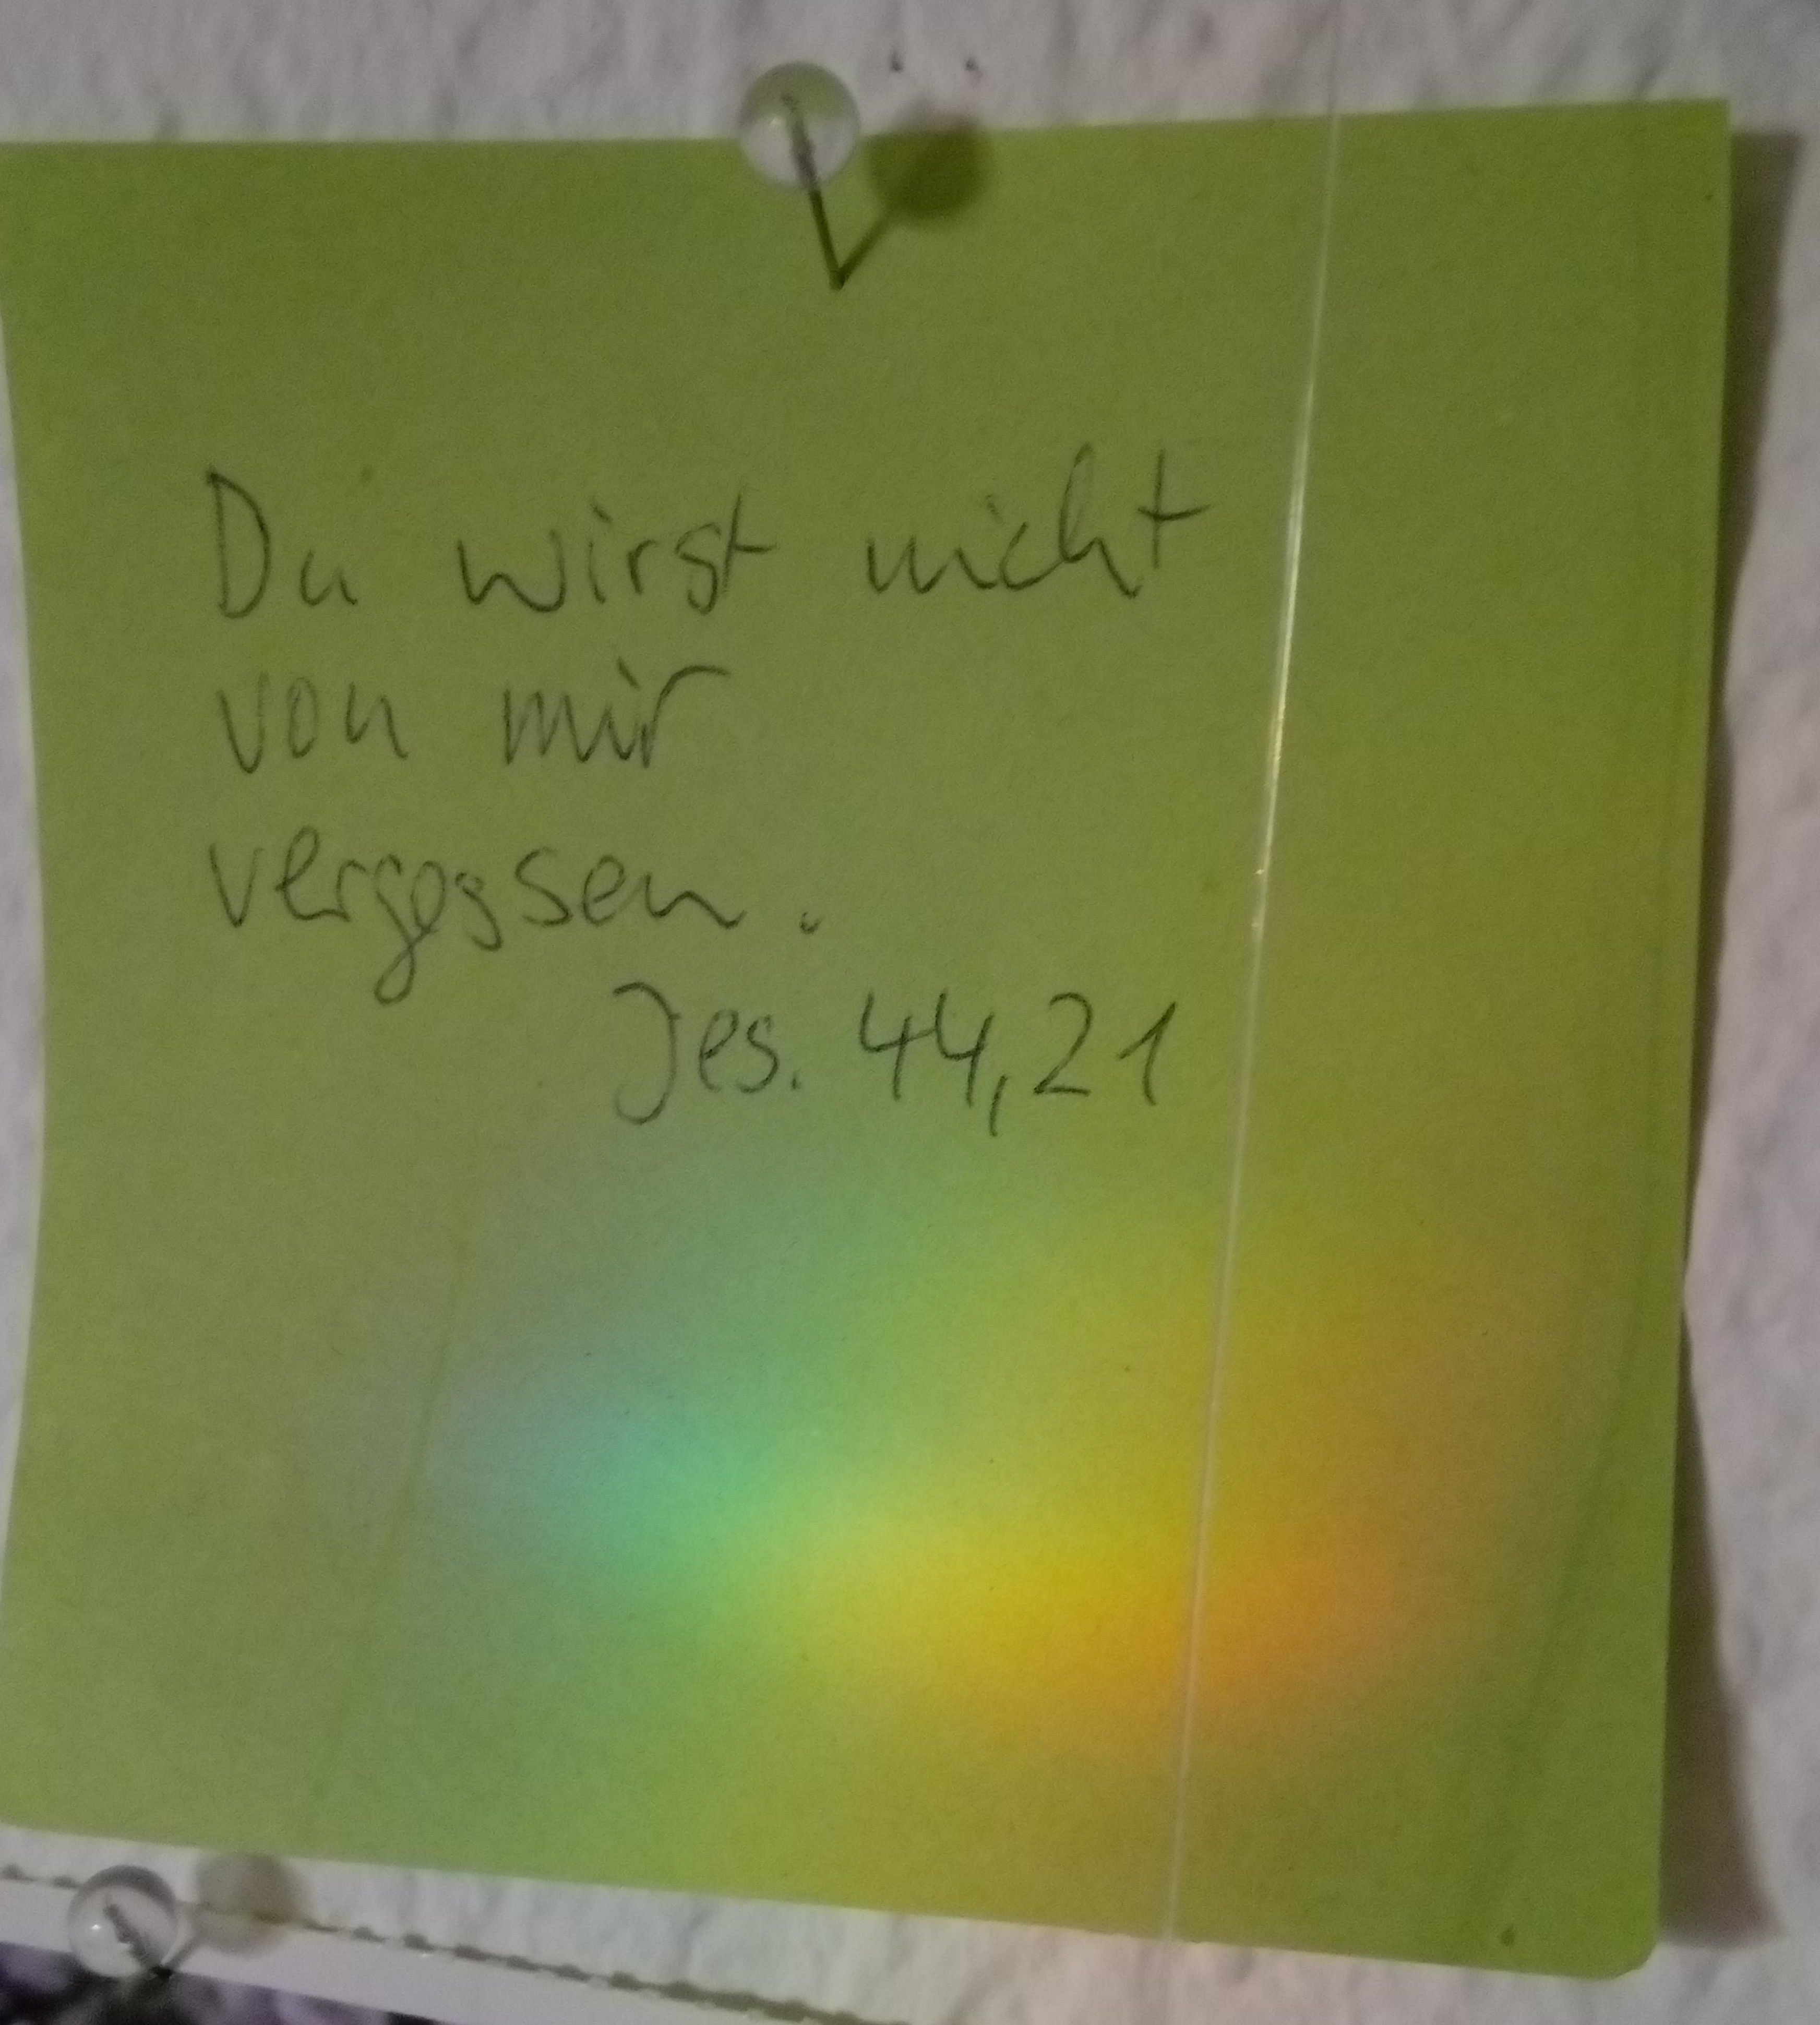 Du wirst nicht
von mir
vergessen.
Jes. 44,21